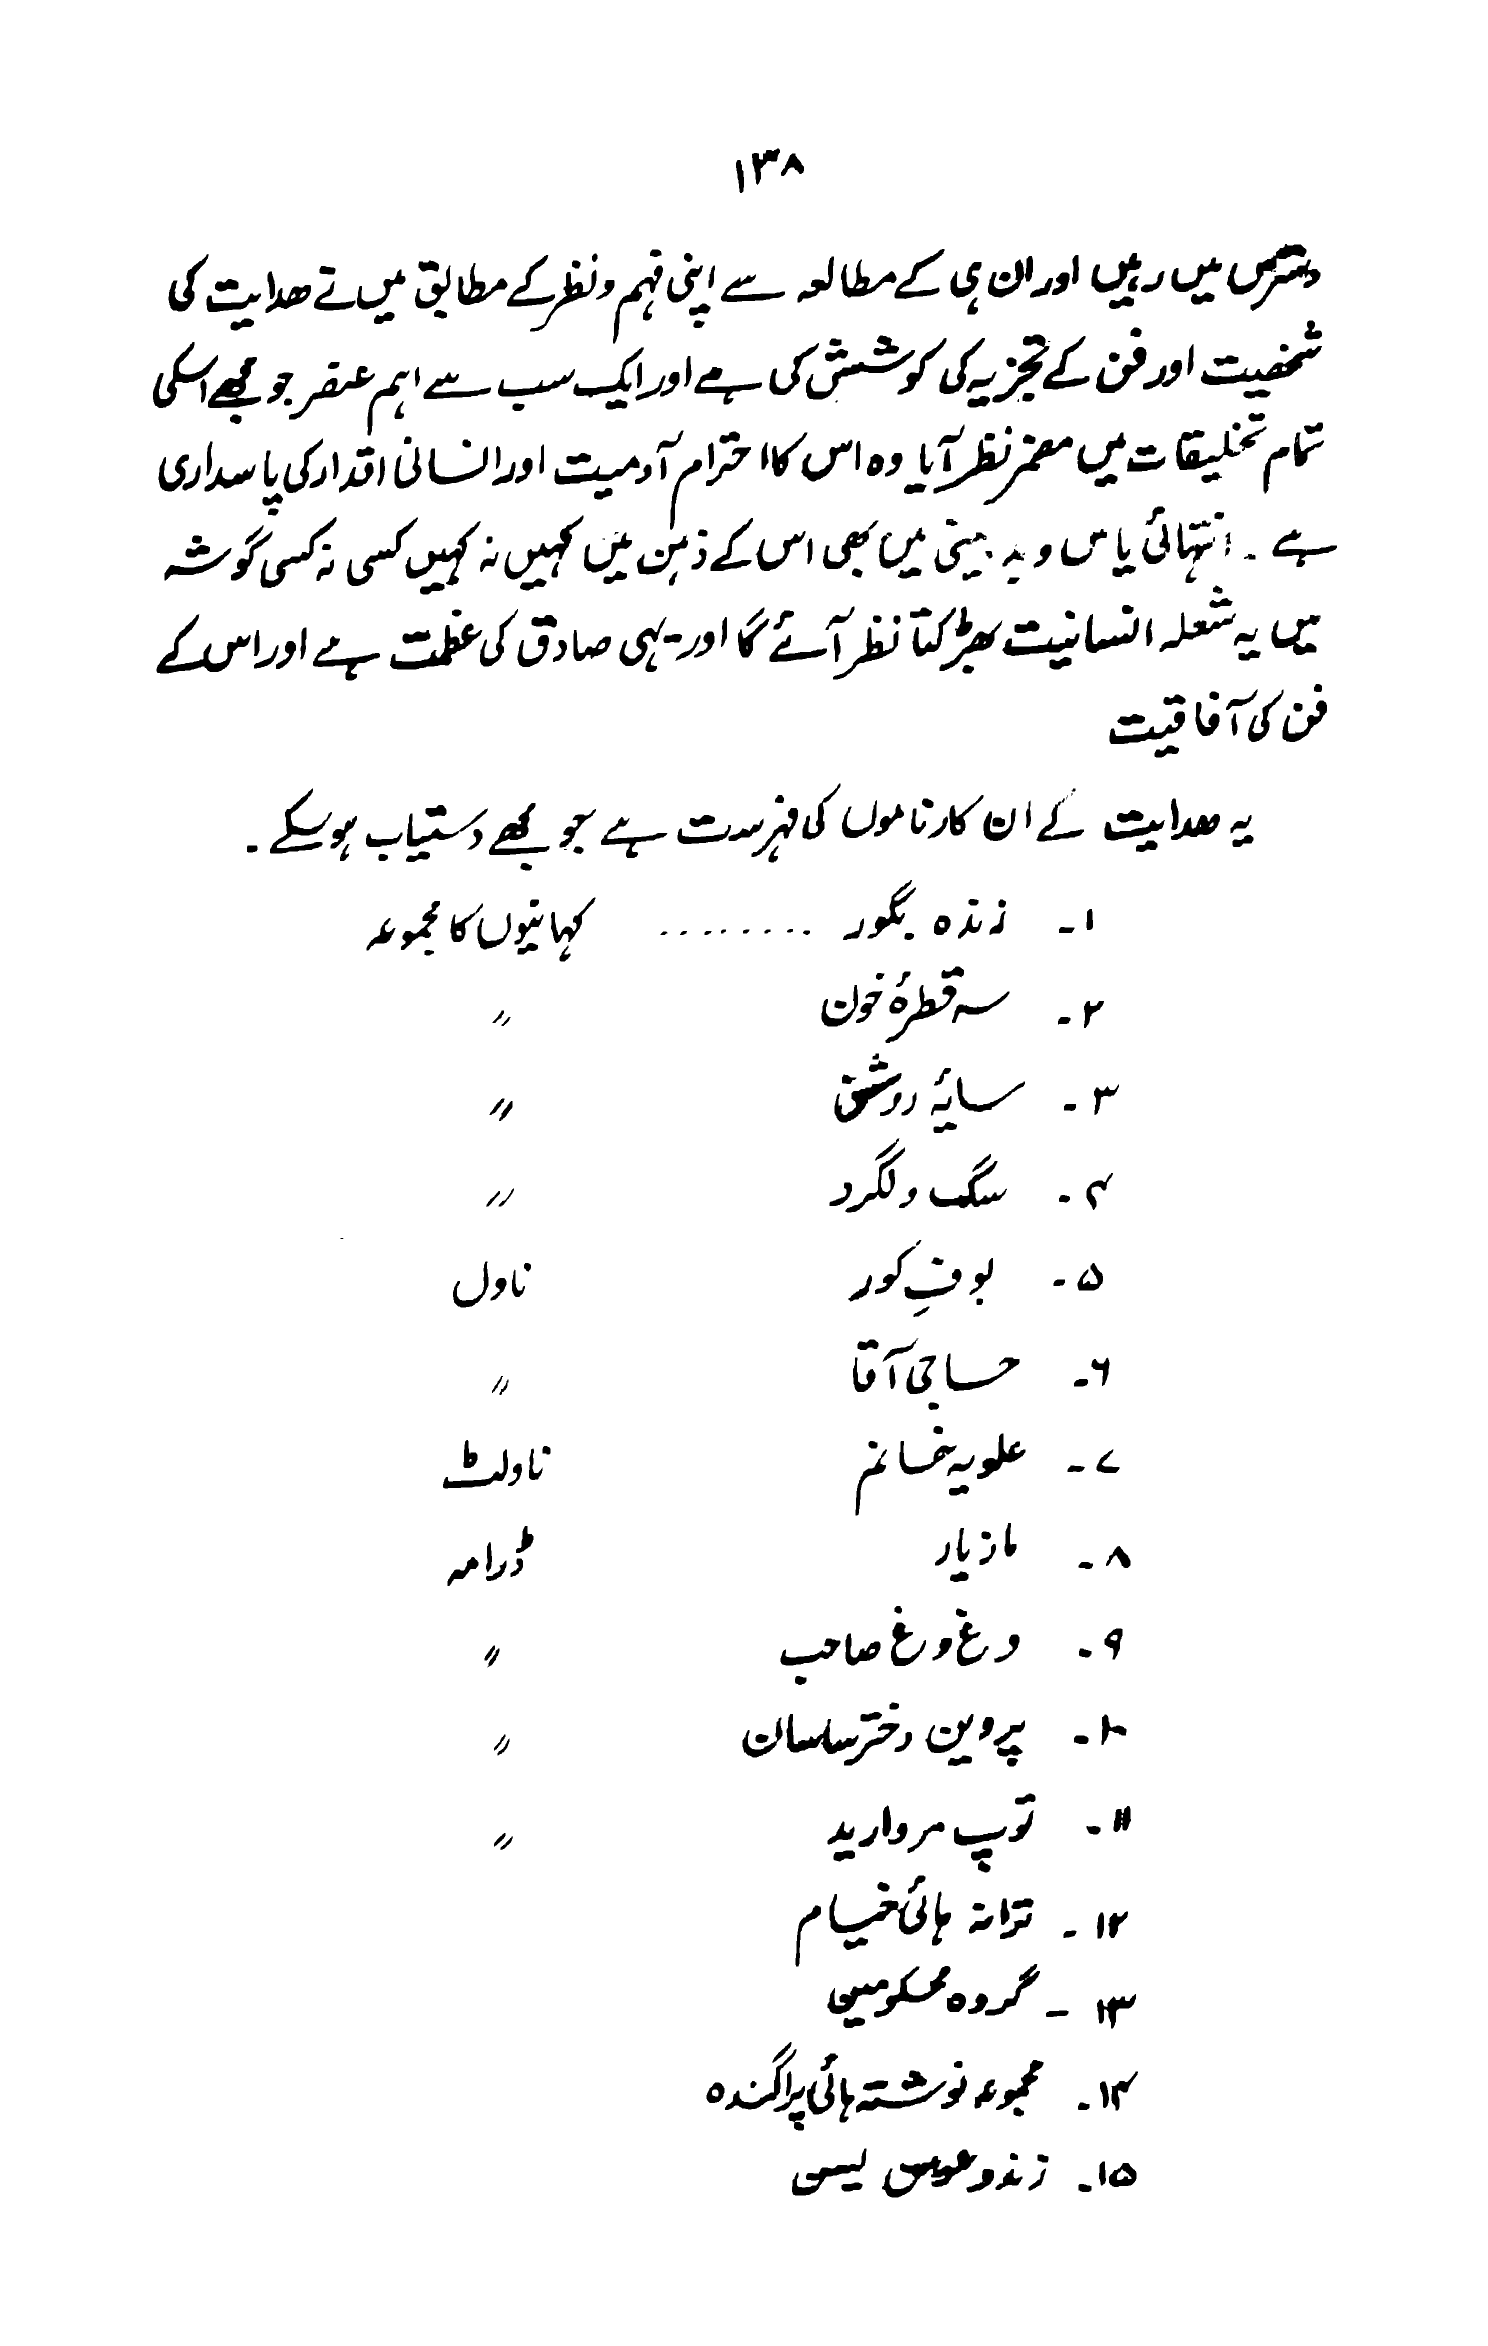 ۱۳۸
دسترس میں رہیں اور ان ہی کے مطالعہ سے اپنی فہم و نظر کے مطابق میں نے ھدایت کی
شخصیت اور فن کے تجزیہ کی کوشش کی ہے اور ایک سب سے اہم عنصر جو مجھے اسکی
تمام تخلیقات میں مضمر نظر آیا وہ اس کا احترام آدمیت اور انسانی اقدار کی پاسداری
ہے ۔ انتہائی یاس و بد بینی میں بھی اس کے ذہن میں کہیں نہ کہیں کسی نہ کسی گوشہ
میں یہ شعلہ انسانیت بھڑکتا نظر آئے گا اور یہی صادق کی عظمت ہے اور اس کے
فن کی آفاقیت
یہ ھدایت کے ان کارناموں کی فہرست ہے جو مجھے دستیاب ہو سکے ۔
۱۔ زندہ بگور ........ کہانیوں کا مجموعہ
۲۔ سہ قطرۂ خون 〃
۳۔ سایۂ روشن 〃
۴۔ سگ ولگرد 〃
۵۔ بوفِ کور ناول
۶۔ حاجی آقا 〃
۷۔ علویہ خانم ناولٹ
۸۔ مازیار ڈرامہ
۹۔ وغ وغ صاحب 〃
۱۰۔ پروین دختر ساسان 〃
۱۱۔ توپ مروارید 〃
۱۲۔ ترانہ ہائی خیام
۱۳۔ گروہ محکومین
۱۴۔ مجموعہ نوشتہ ہائی پراگندہ
۱۵۔ زند و ھومن یسن